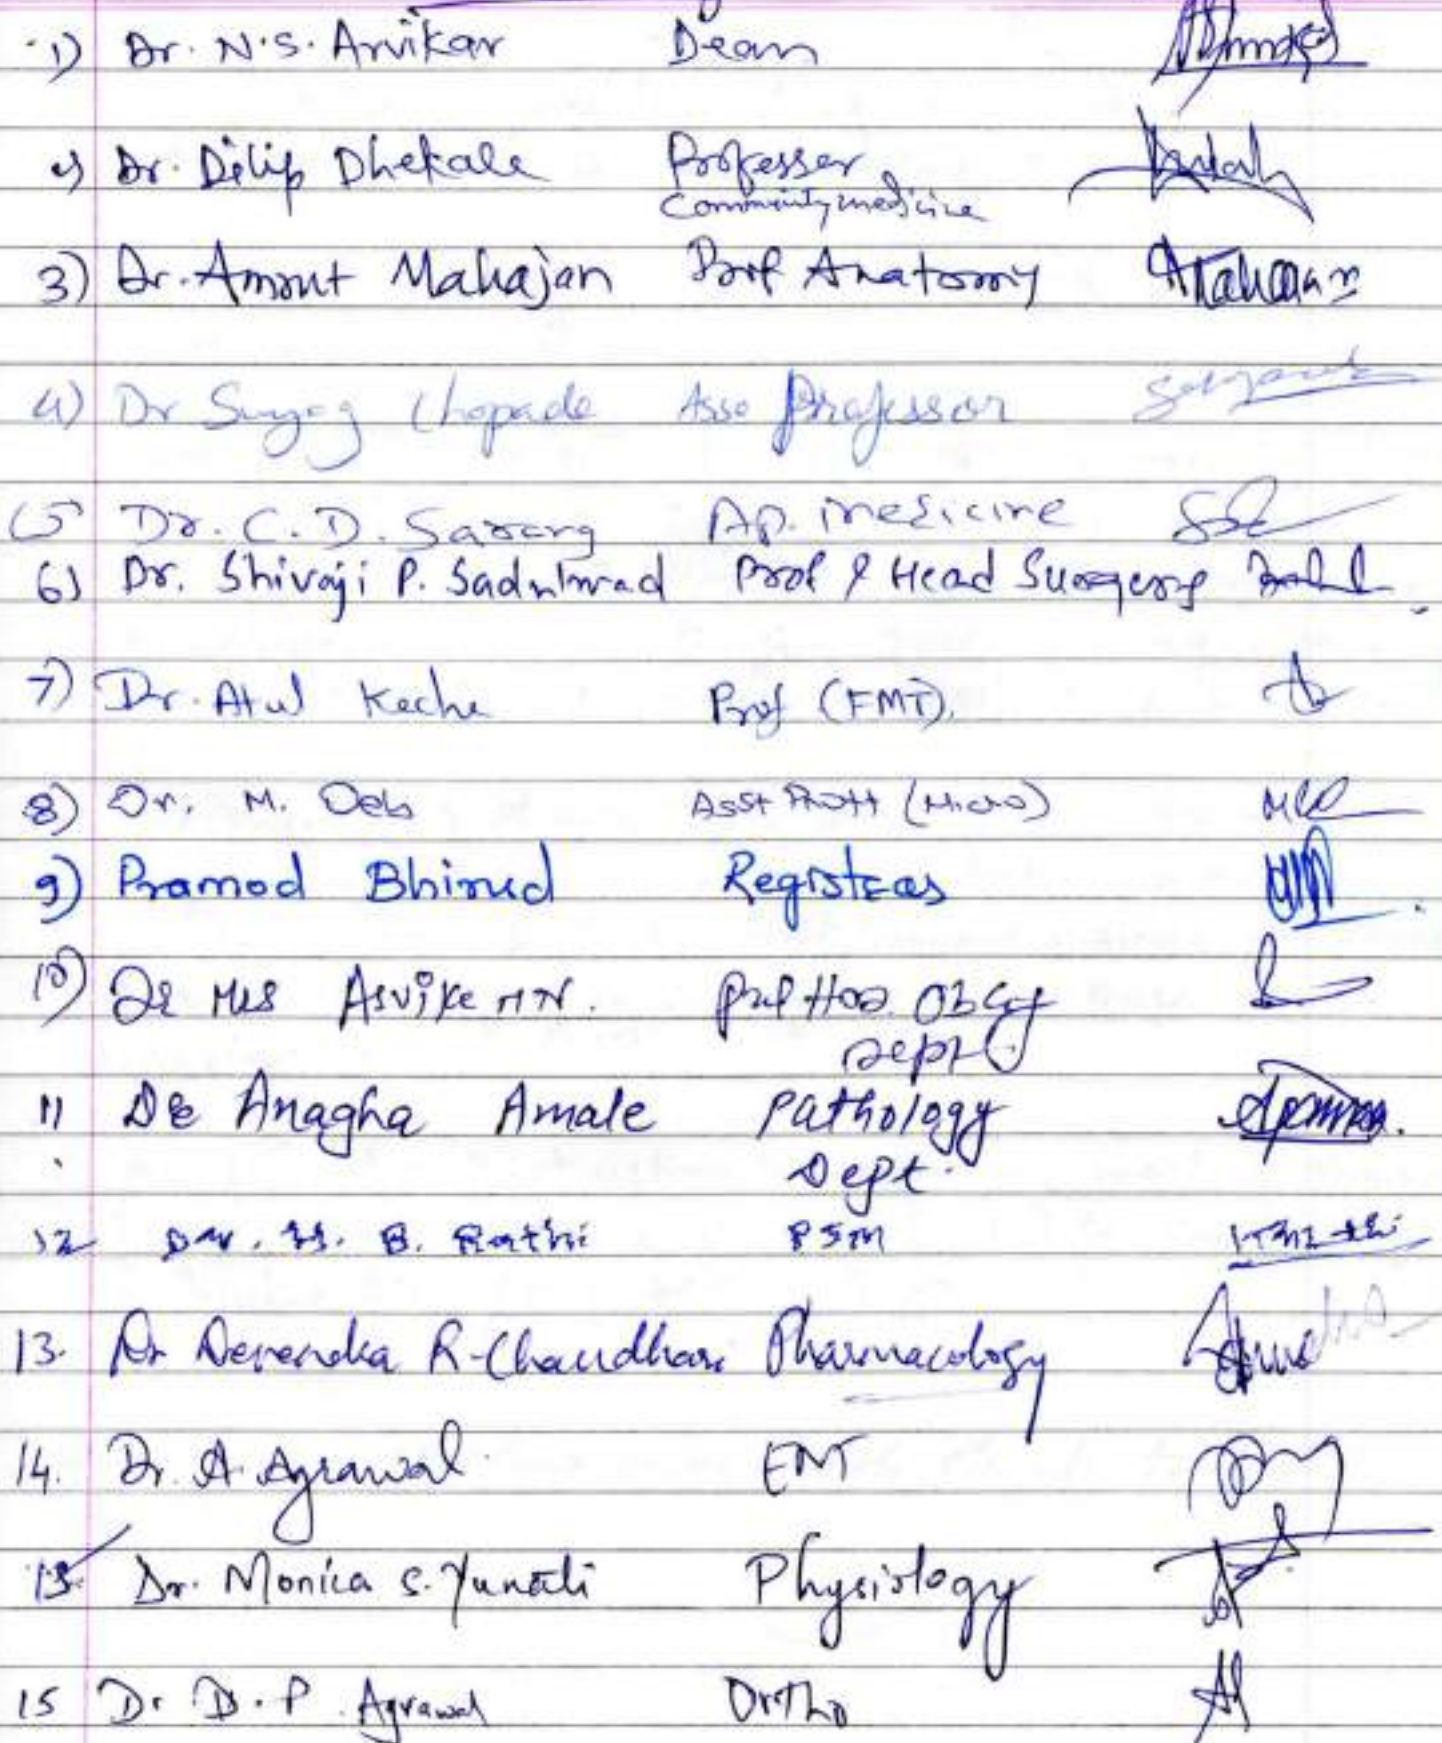 1) Dr. N.S. Arvikar Dean
2) Dr. Dilip Dhekale Professer
Community medicine
3) Dr. Amrut Mahajan Prof Anatomy
4) Dr Suyog Chopade Asso Professor
(5 Dr. C.D. Sarang Ap. medicine
6) Dr. Shivaji P. Sadulwad Prof & Head Surgery
7) Dr. Atul Keche Prof (FMT).
8) Dr. M. Deb Asst Proff (Micro)
9) Pramod Bhirud Registrar
10) Dr Mrs Arvike MN. Prof HOD. OBGy
Dept
11 Dr Anagha Amale Pathology
Dept.
12 Dr. H. B. Rathi PSM
13. Dr Devendra R. Chaudhari Pharmacology
14. Dr. A. Agrawal ENT
15. Dr. Monica S. Yunati Physiology
15 Dr. D.P. Agrawal Ortho